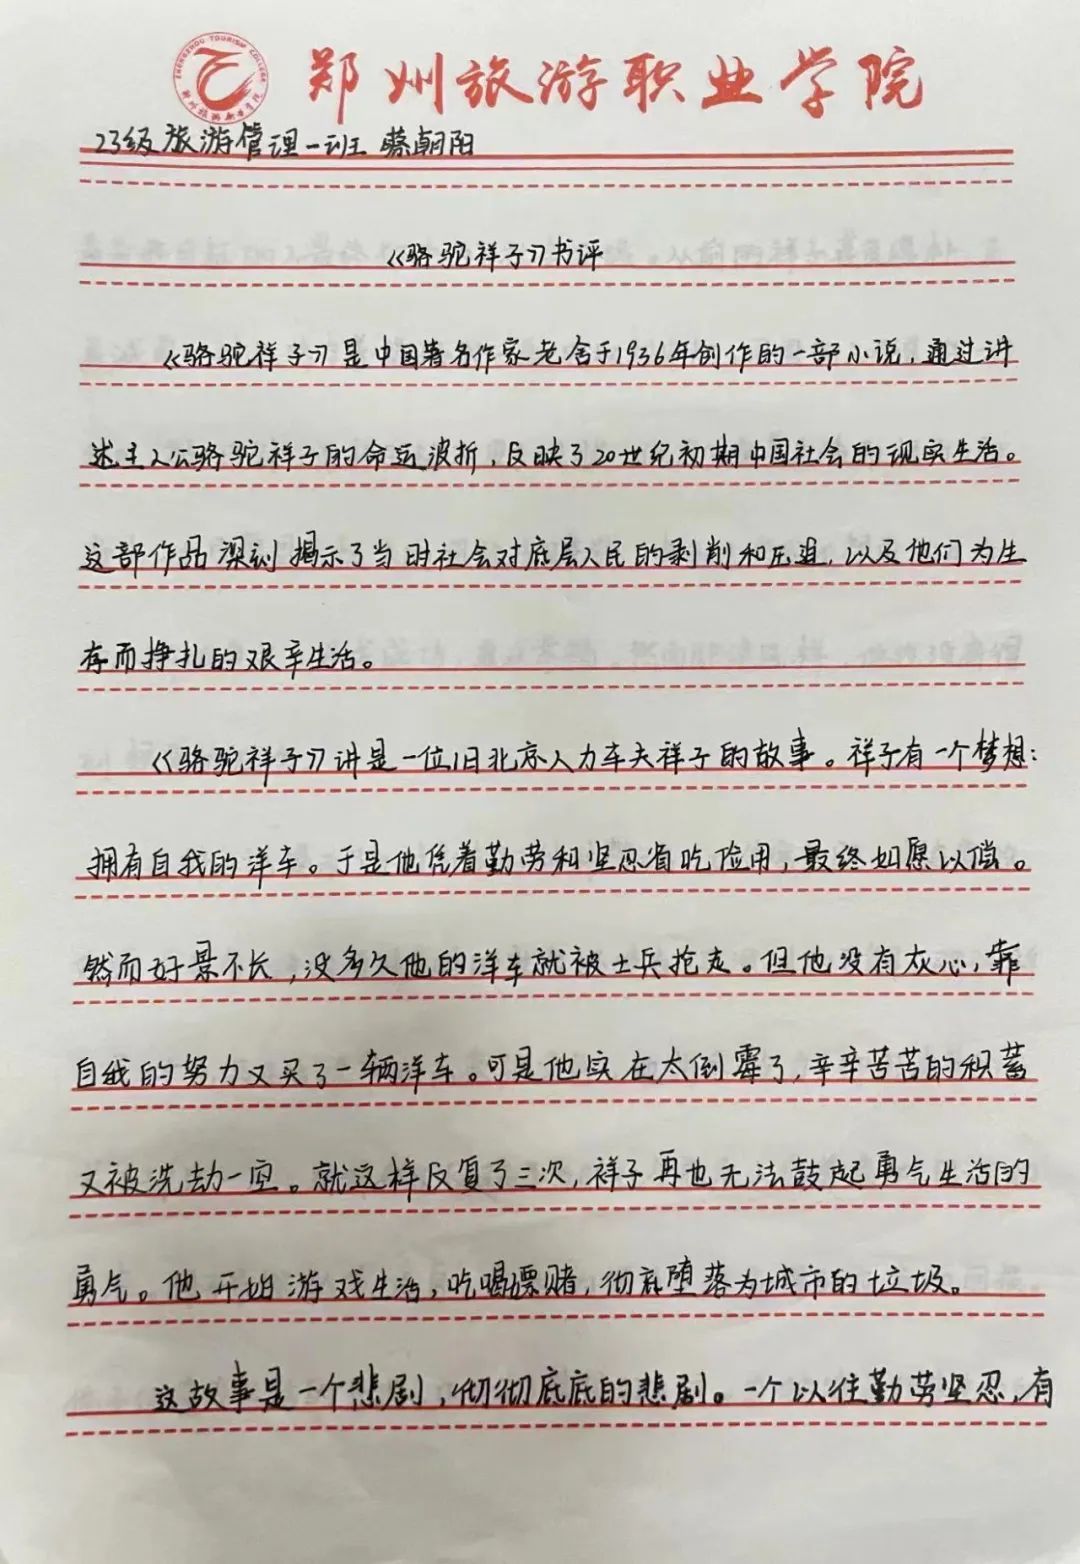 ZHENGZHOU TOURISM COLLEGE
郑州旅游职业学院
郑州旅游职业学院
23级旅游管理一班 蔡朝阳
《骆驼祥子》书评
《骆驼祥子》是中国著名作家老舍于1936年创作的一部小说,通过讲
述主人公骆驼祥子的命运波折,反映了20世纪初期中国社会的现实生活。
这部作品深刻揭示了当时社会对底层人民的剥削和压迫,以及他们为生
存而挣扎的艰辛生活。
《骆驼祥子》讲是一位旧北京人力车夫祥子的故事。祥子有一个梦想:
拥有自我的洋车。于是他凭着勤劳和坚忍省吃俭用,最终如愿以偿。
然而好景不长,没多久他的洋车就被士兵抢走。但他没有灰心,靠
自我的努力又买了一辆洋车。可是他实在太倒霉了,辛辛苦苦的积蓄
又被洗劫一空。就这样反复了三次,祥子再也无法鼓起勇气生活的
勇气。他开始游戏生活,吃喝嫖赌,彻底堕落为城市的垃圾。
这故事是一个悲剧,彻彻底底的悲剧。一个以往勤劳坚忍,有